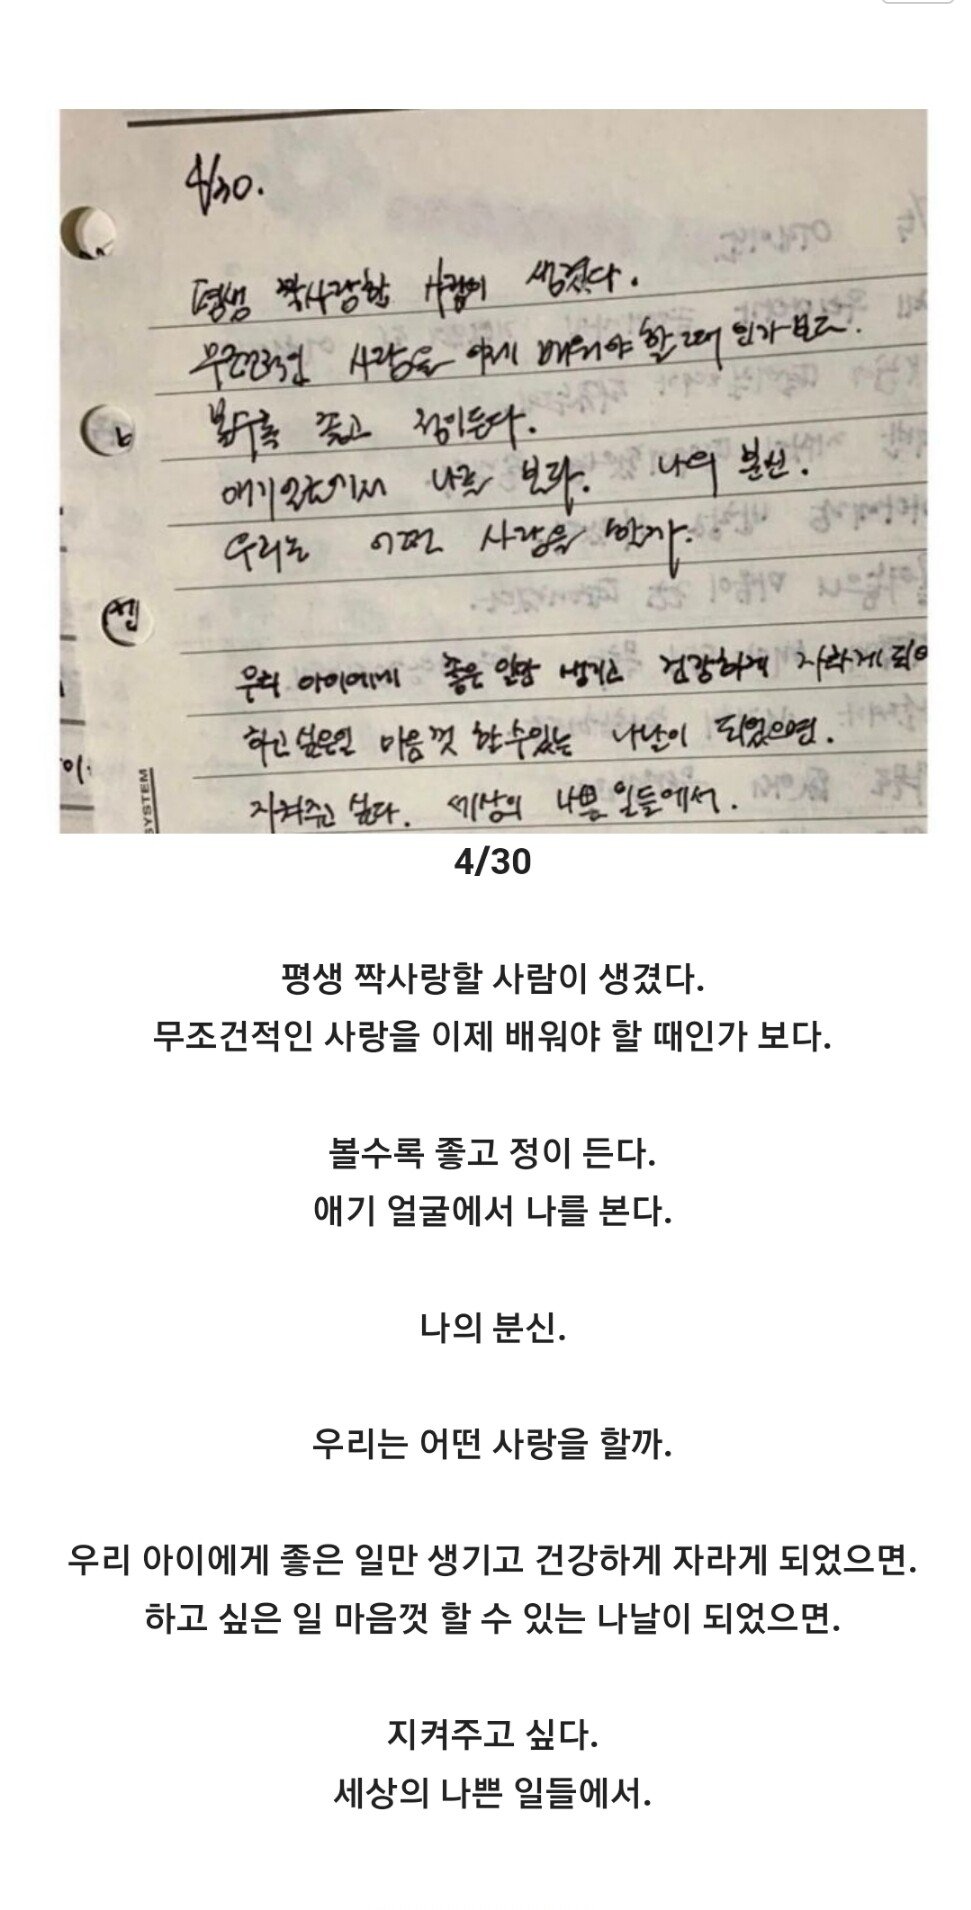 4/30.
평생 짝사랑할 사람이 생겼다.
무조건적인 사랑을 이제 배워야 할 때 인가 보다.
볼수록 좋고 정이든다.
애기 얼굴에서 나를 본다. 나의 분신.
우리는 어떤 사랑을 할까.
우리 아이에게 좋은 일만 생기고 건강하게 자라게 되어
하고 싶은일 마음껏 할 수 있는 나날이 되었으면.
지켜주고 싶다. 세상의 나쁜 일들에서.
SYSTEM
4/30
평생 짝사랑할 사람이 생겼다.
무조건적인 사랑을 이제 배워야 할 때인가 보다.
볼수록 좋고 정이 든다.
애기 얼굴에서 나를 본다.
나의 분신.
우리는 어떤 사랑을 할까.
우리 아이에게 좋은 일만 생기고 건강하게 자라게 되었으면.
하고 싶은 일 마음껏 할 수 있는 나날이 되었으면.
지켜주고 싶다.
세상의 나쁜 일들에서.